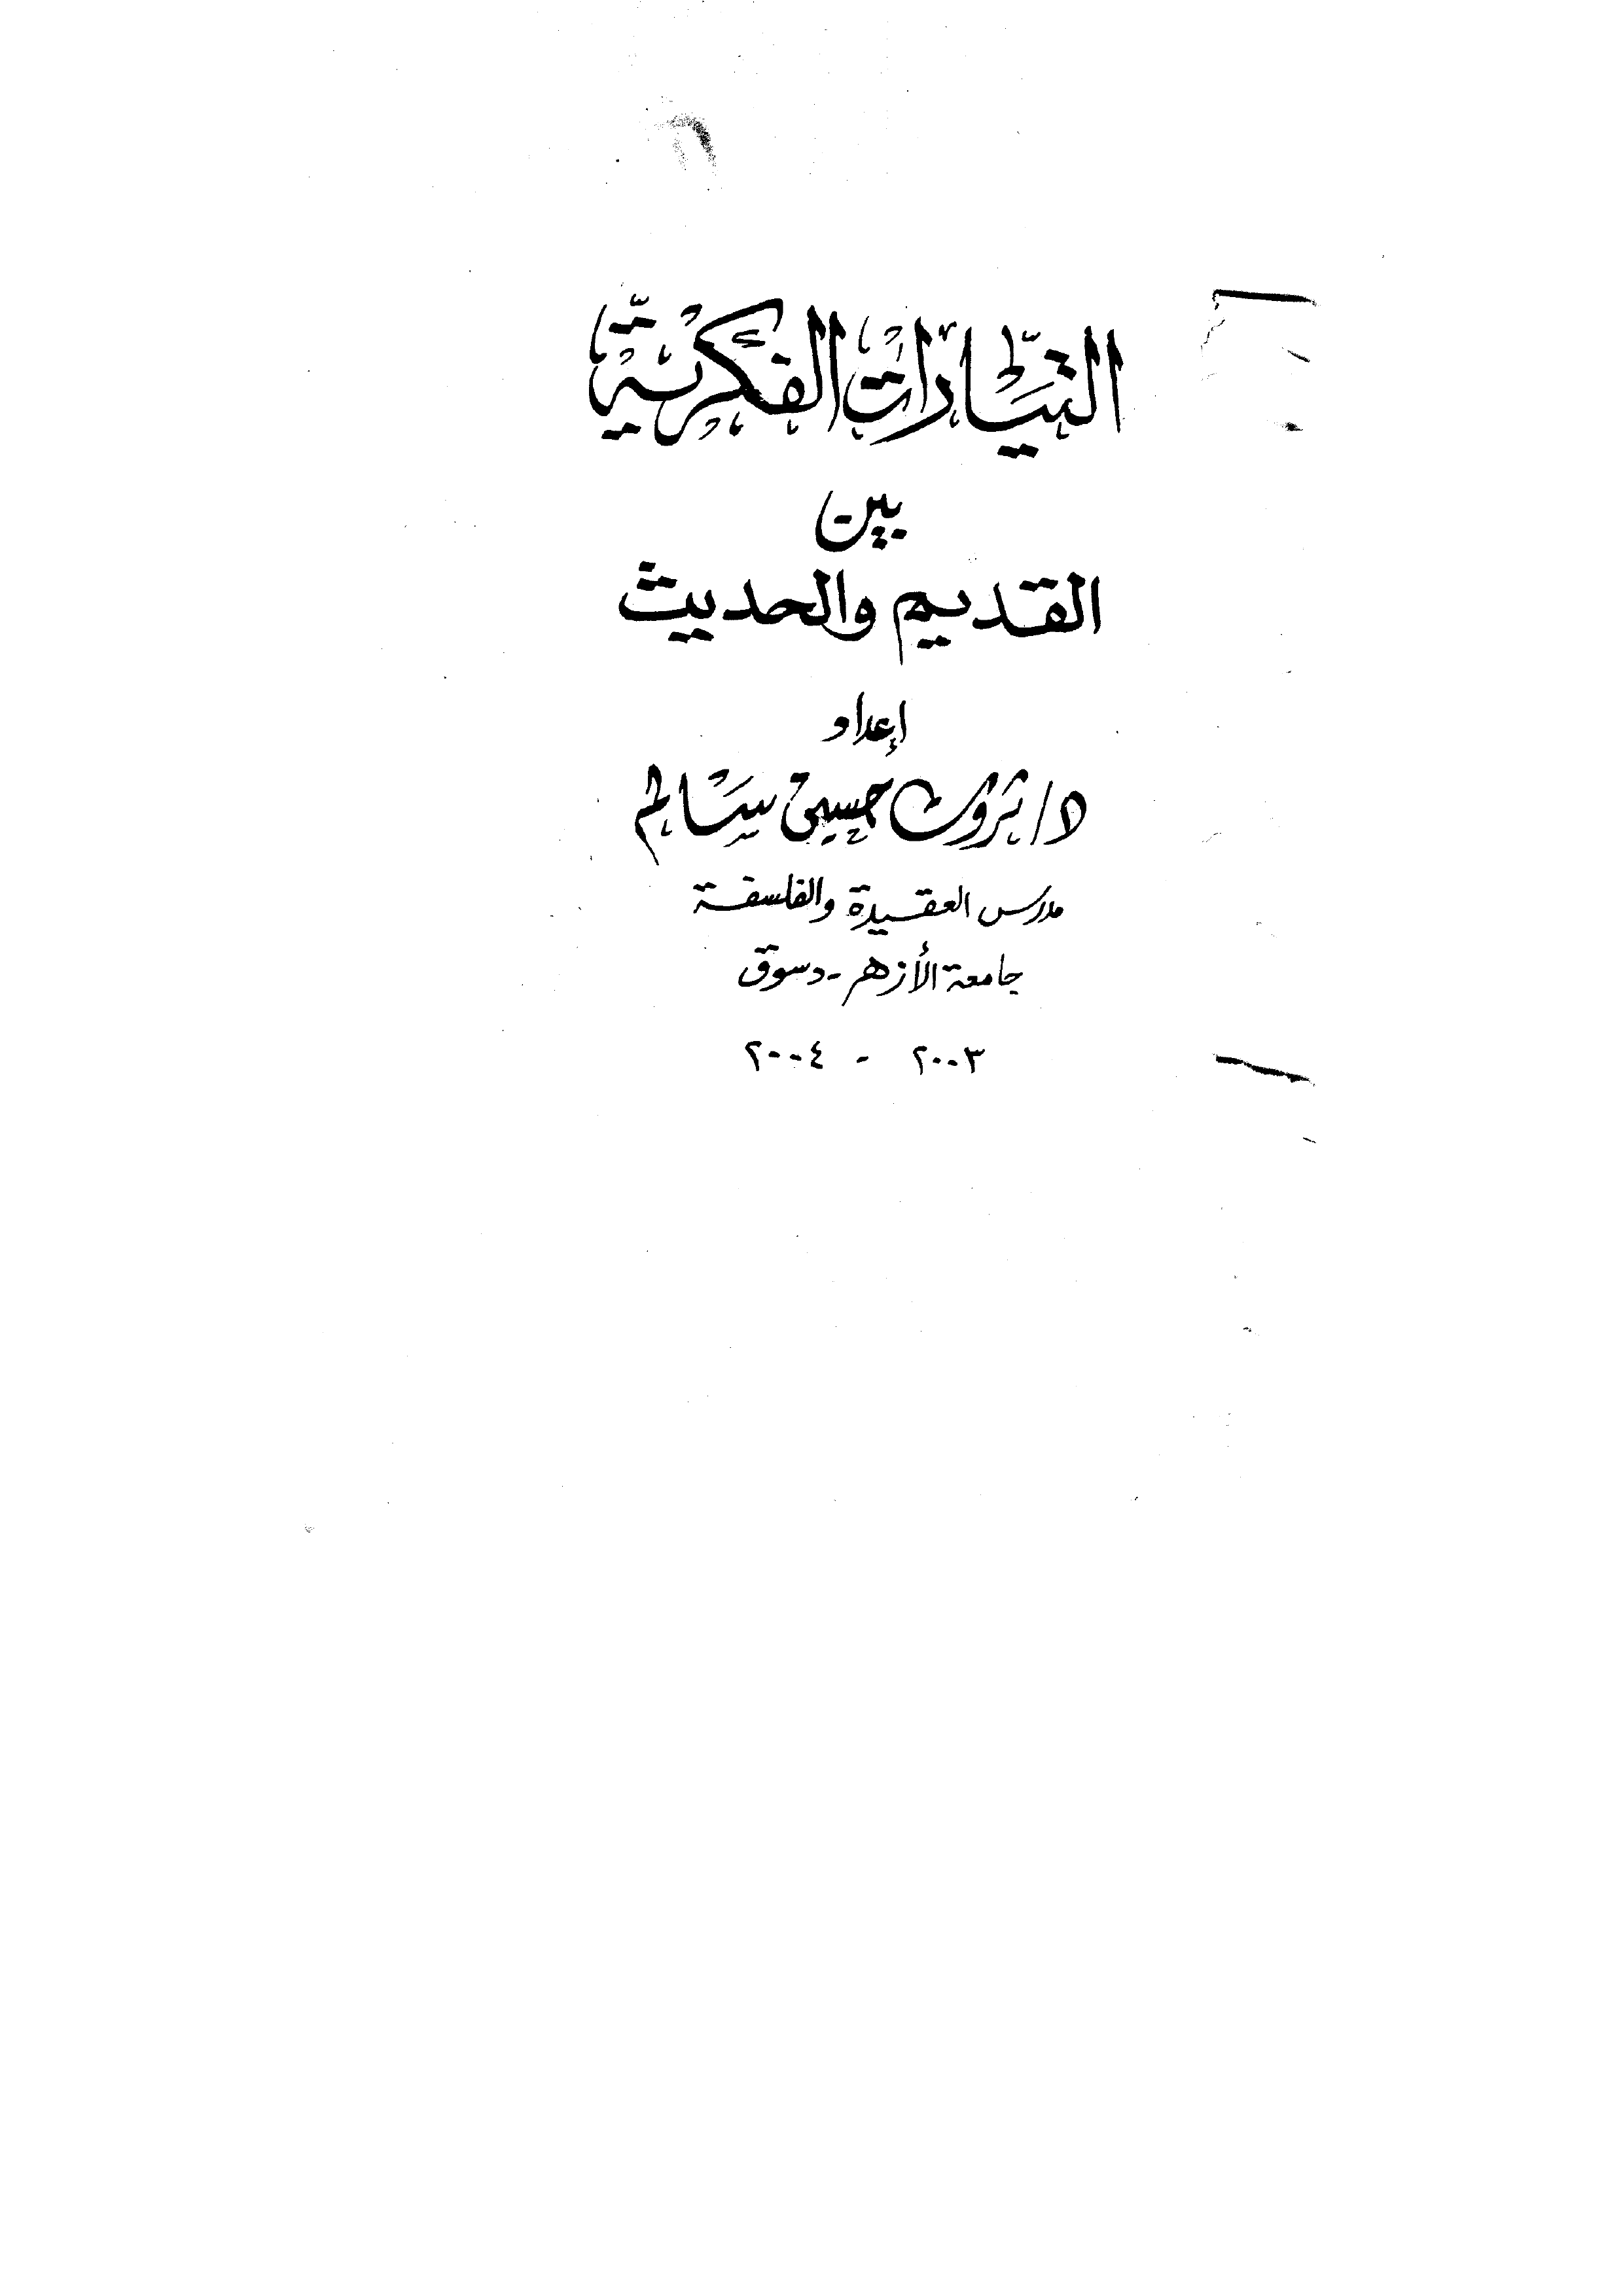 التيارات الفكرية
بين
القديم والحديث
إعداد
د/ ثروت حسين سالم
مدرس العقيدة والفلسفة
جامعة الأزهر - دسوق
٢٠٠٣ - ٢٠٠٤